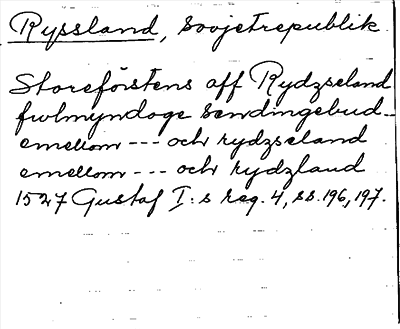 Ryssland, Sovjetrepublik.
Storeförstens aff Rydzseland
fwlmyndoge sendingebud_
emellom --- och rydzseland
emellom --- och rydzland
1527 Gustaf I:s reg. 4, ss. 196, 197.